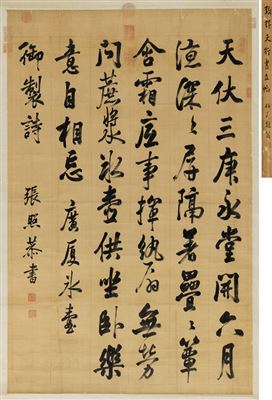 天伏三庚永堂開六月
涼深〻屏隔暑疊〻簟
含霜底事揮紈扇無勞
問蔗漿冰壺供坐臥樂
意自相忘 廣厦冰壺
御製詩 張照恭書